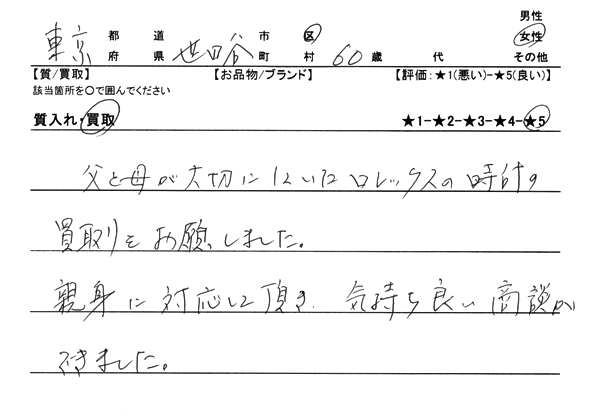 男性
東京 都 道 世田谷 市 区 60 歳 代 女性
府 県 町 村 その他
【質/買取】 【お品物/ブランド】 【評価:★1(悪い)-★5(良い)】
該当箇所を〇で囲んでください
質入れ・買取 ★1-★2-★3-★4-★5
父と母が大切にしていたロレックスの時計の
買取りをお願いしました。
親身に対応して頂き、気持ち良い商談が
できました。